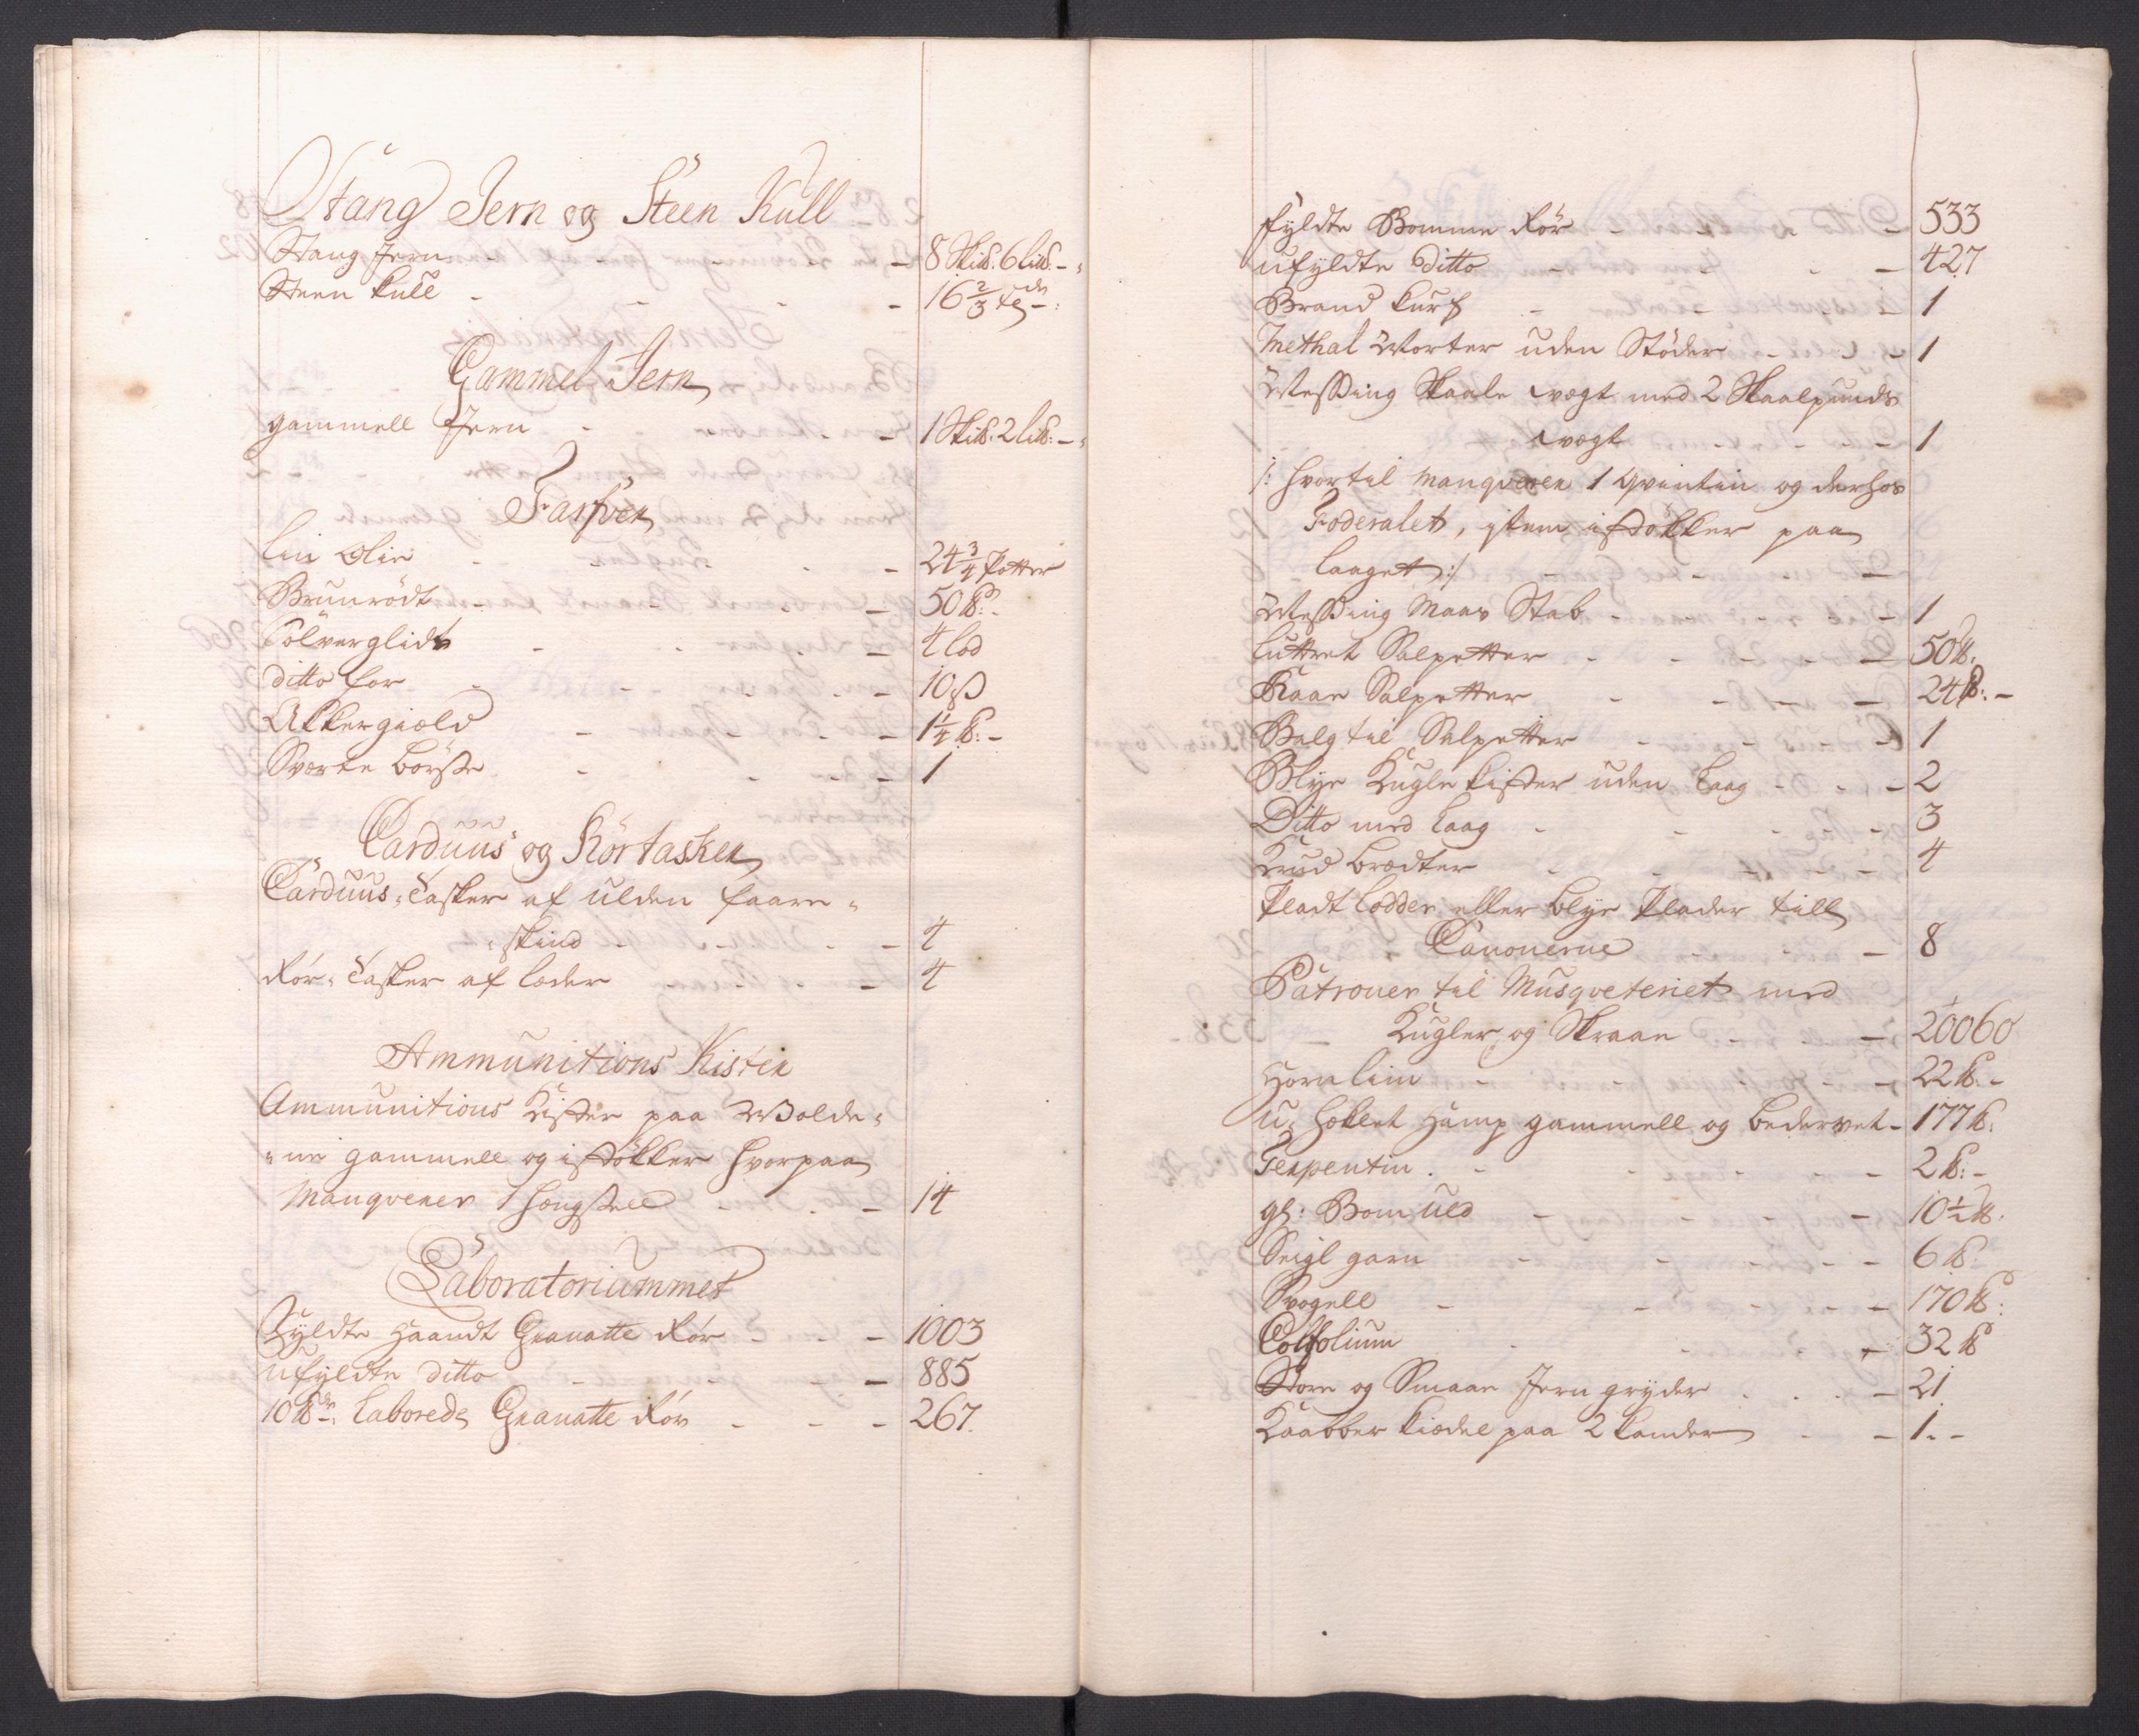 Stang Jern og Steen Kull
Stang Jern - - - 8 Sk℔. 6 L℔. -
Steen kull - - - 16 2/3 tdr.
Gammel Jern
gammell Jern - - 1 Sk℔. 2 L℔: -
Farfver
Lin Olie - - - 24 3/4 Potter
Brunrödt - - - 50 ℔:
Sölverglidt - - - 4 lod
ditto for - - - 10 ß
Akkergiæld - - - 1 1/4 ℔: -
Sværte börste - - - 1
Carduus og Rörtasker
Carduus, tasker af ulden faare-
skind - - - 4
Rör, tasker af læder - - 4
Ammunitions Kister
Ammunitions Kister paa Wolde-
ne gammell og istökker hvorpaa
Manqverer 1 hængsell - - 14
Laboratoriummet
Fyldte Haandt Granatte Rör - - 1003
ufyldte ditto - - - 885
10 ℔: Laborede Granatte Rör - - - 267.
fyldte Bomme Rör - - - 533
ufyldte ditto - - - 427
Brand kurf - - - 1
Methal Morter uden Stöder - - - 1
Messing Skaale vægt med 2 Skaalpunds
vægt - - - 1
/: hvortil manqverer 1 qvintin og derhos
Foderalet, item istökker paa
laaget :/ - - -
Messing Maas Stab - - - 1
Luttret Salpetter - - - 50 ℔:
Raae Salpetter - - - 24 ℔: -
Balg til Salpetter - - - 1
Blye Kugle kister uden Laag - - - 2
Ditto med Laag - - - 3
Krud brædter - - - 4
Pladt Lodder eller Blye Plader till
Canonerne - - - 8
Patroner til Musqveteriet med
Kugler og Skraae - - - 20060
Horn Liim - - - 22 ℔: -
U, heklet Hamp gammell og bedervet - 177 ℔:
Terpentin - - - 2 ℔: -
gl: Bom uld - - - 10 1/2 ℔.
Seigl garn - - - 6 ℔:
Svogell - - - 170 ℔:
Colfolium - - - 32 ℔
Store og Smaae Jern gryder - - - 21
Kaabber kiædel paa 2 kander - - 1. -